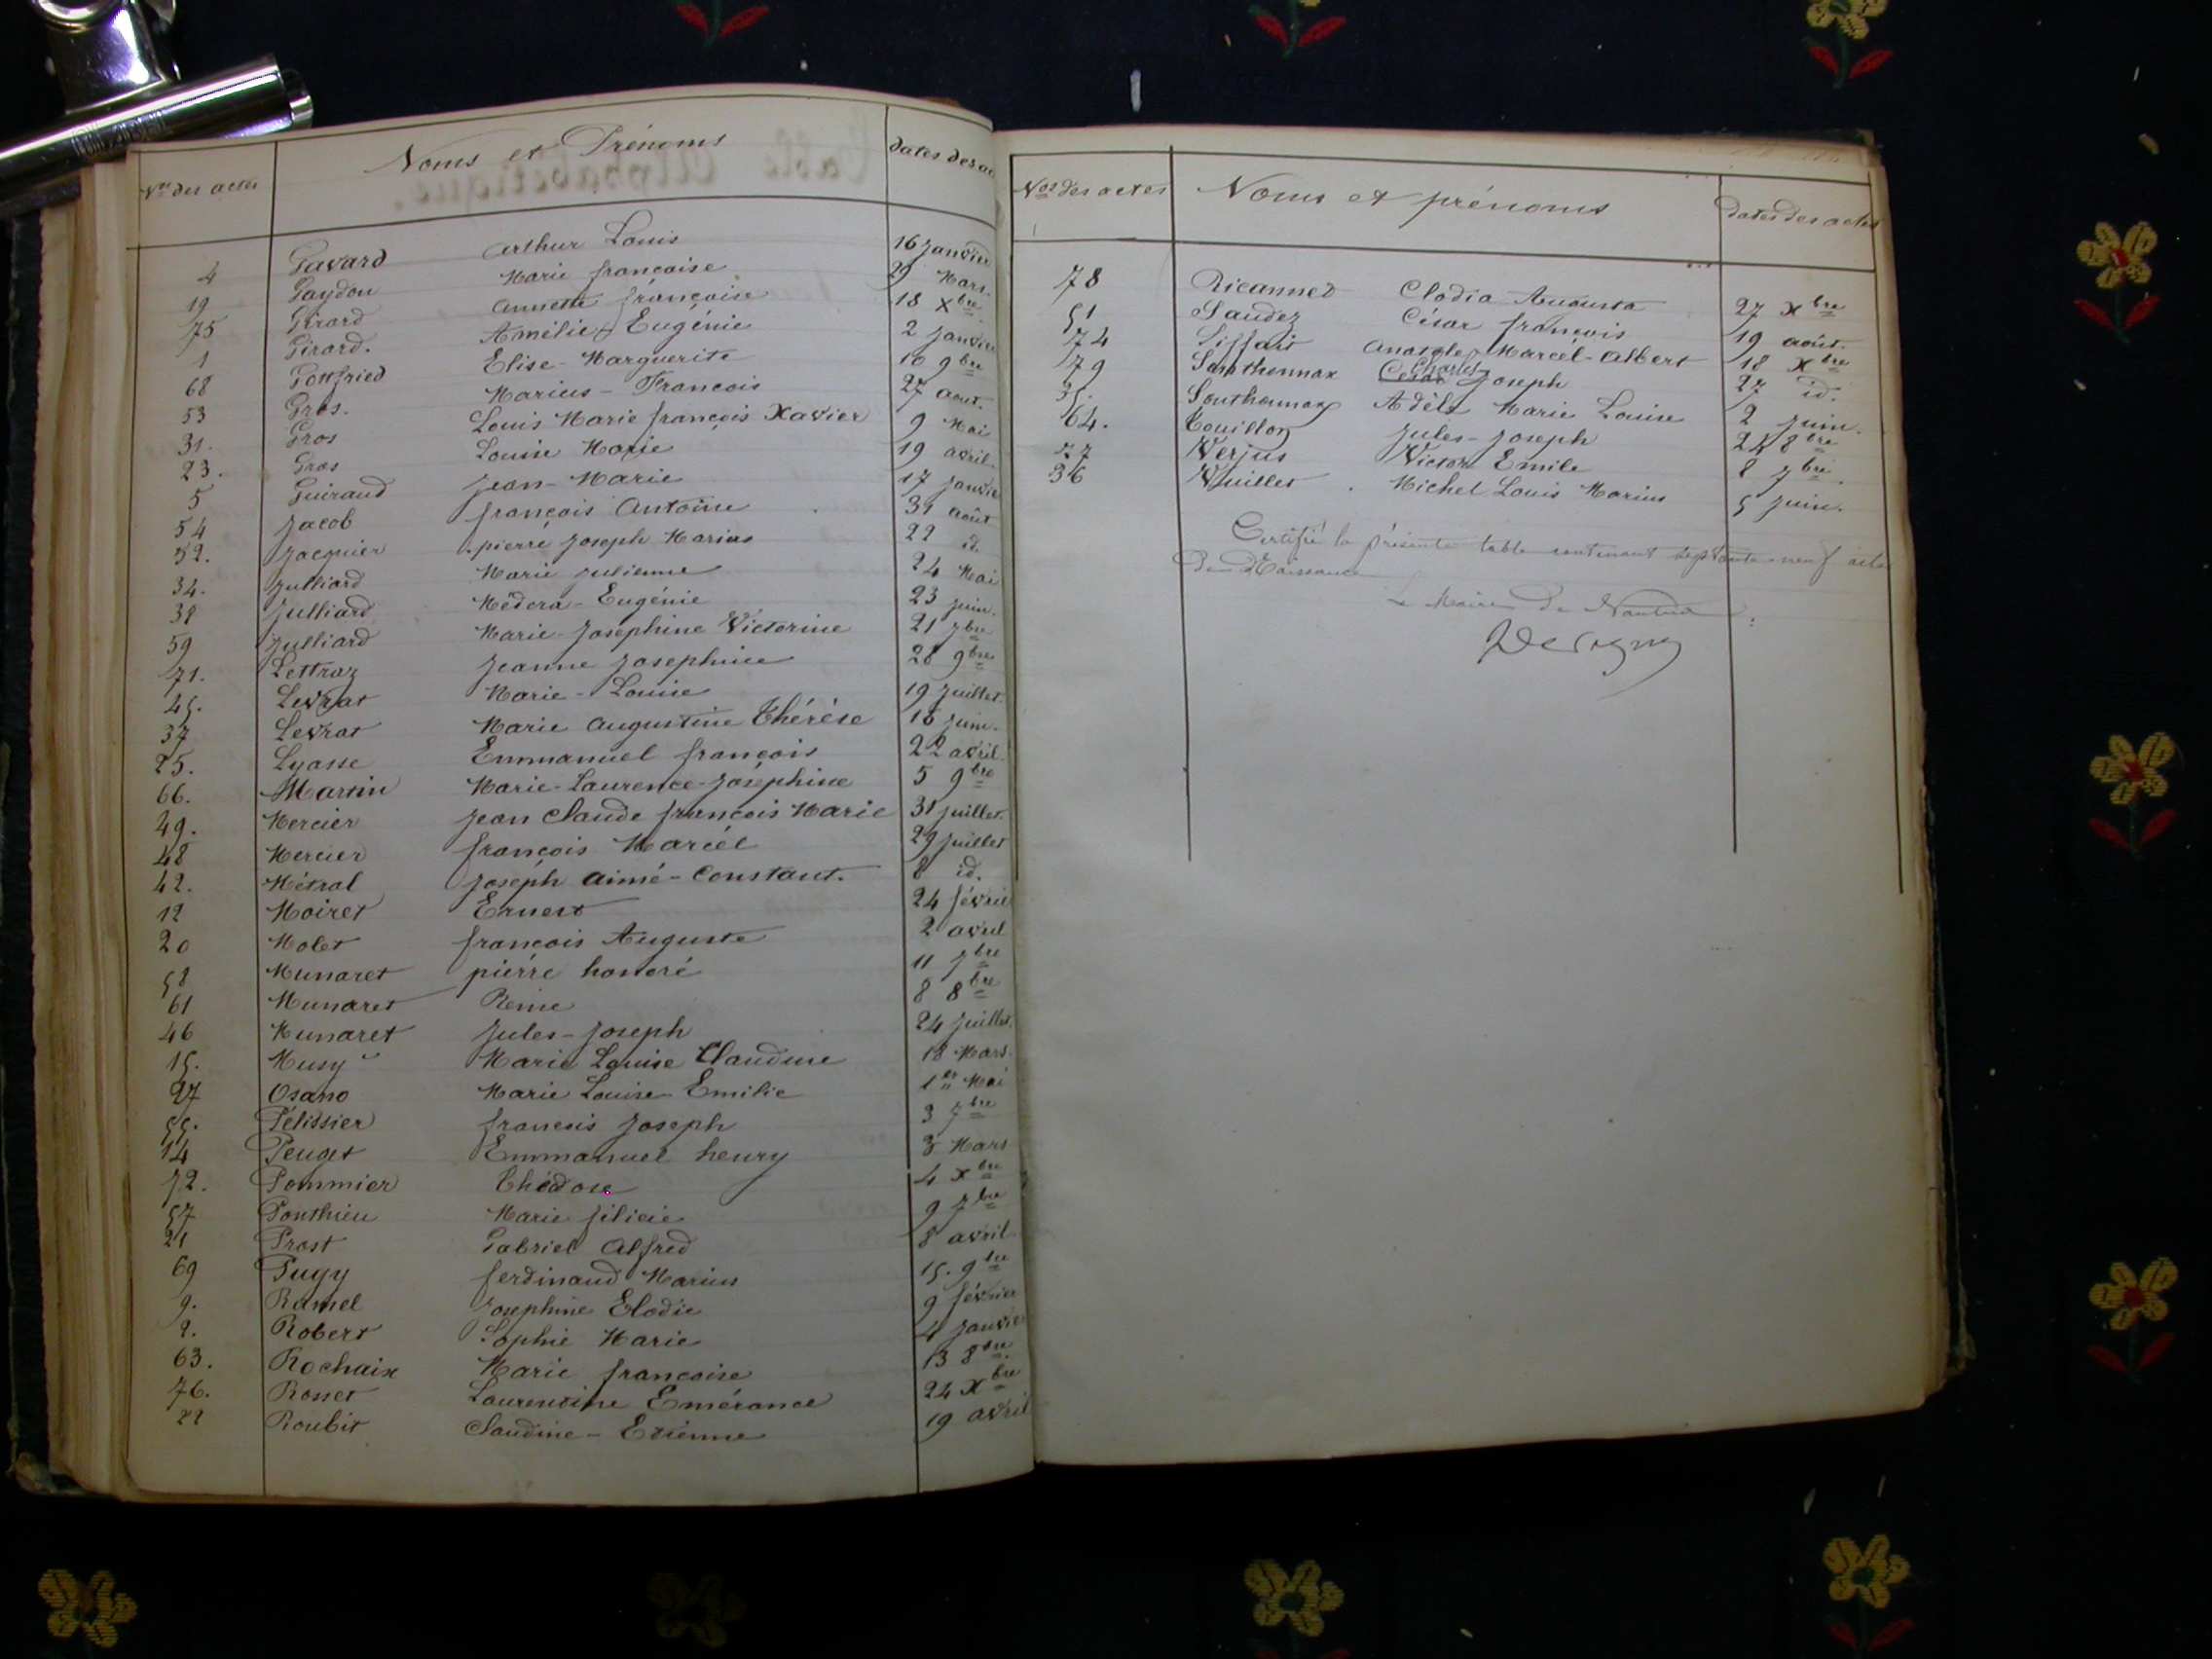 Nos des actes Noms et Prénoms dates des ac
4 Gavard Arthur Louis 16 Janvier
19 Gaydon Marie françoise 29 Mars.
75 Girard Annette françoise 18 Xbre
1 Girard. Amélie Eugénie 2 Janvier
68 Gottfried Elise-Marguerite 10 9bre
53 Gros. Marius-François 27 aout.
31. Gros Louis Marie françois Xavier 9 Mai
23. Gros Louise Marie 19 avril.
5 Guiraud Jean-Marie 17 Janvier
54 Jacob françois Antoine 31 août
52. Jacquier pierre Joseph Marius 22 id.
34. Julliard Marie Julienne 24 Mai
38 Julliard Médera-Eugénie 23 juin.
59 Julliard Marie-Josephine Victorine 21 7bre
71. Lettraz Jeanne Josephine 28 9bre
45. Levrat Marie-Louise 19 Juillet.
37 Levrat Marie Augustine Thérèse 16 juin.
25. Lyasse Emmanuel françois 22 avril.
66. Martin Marie-Laurence-Joséphine 5 9bre
49. Mercier Jean Claude françois Marie 31 juillet.
48 Mercier françois Marcél 29 juillet
42. Métral Joséph aimé-Constant. 8 id.
12 Moiret Ernest 24 févrie
20 Molet françois Auguste 2 avril
58 Munaret pierre honoré 11 7bre
61 Munaret Reine 8 8bre
46 Munaret Jules-Joseph 24 juillet.
15. Musy Marie Louise Claudine 18 Mars.
27 Osano Marie Louise Emilie 1er Mai
55. Pélissier francois Joseph 3 7bre
14 Peuget Emmanuel henry 3 Mars
72. Pommier Théodose 4 Xbre
57 Ponthieu Marie filicie 9 7bre
21 Prost Gabriel Alfred 8 avril.
69 Pugy ferdinand Marius 15. 9bre
9. Ramel Josephine Elodie 9 février
2. Robert Sophie Marie 4 Janvier
63. Rochaix Marie françoise 13 8bre.
76. Rosset Laurentine Emérance 24 Xbre
22 Roubit Claudine-Etienne 19 avril
Nos des actes Noms et prénoms dates des actes
78 Ricannet Clodia Augusta 27 Xbre
51 Saudez César françois 19 août.
74 Siffait Anatole Marcel-Albert 18 Xbre
79 Southonnax César Charles Joseph 27 id.
35. Southonnax Adèle Marie Louise 2 Juin.
64. Touillon Jules-Joseph 24 8bre
77 Verjus Victor Emile 8 7bre.
36 Vuillet. Michel Louis Marius 5 Juin.
Certifié la présente table contenant septante-neuf actes
de Naissance
Le Maire de Nantua